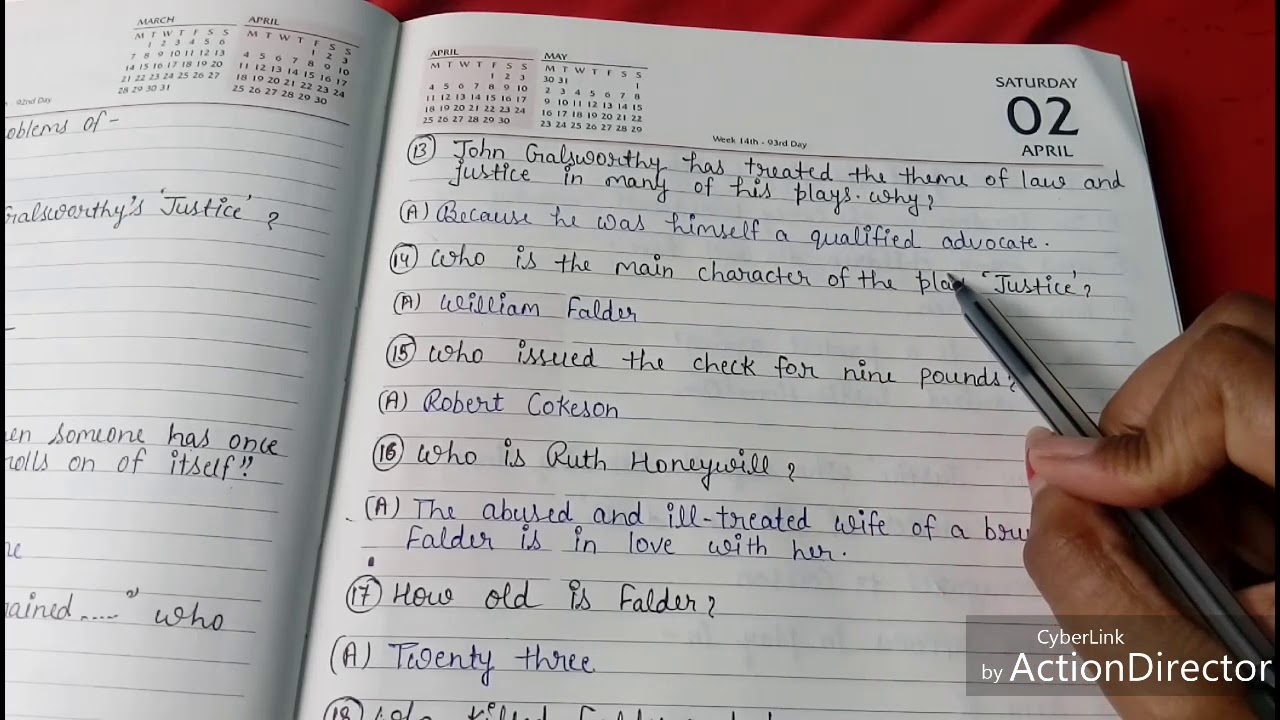 MARCH
M T W T F S S
1 2 3 4 5 6
7 8 9 10 11 12 13
14 15 16 17 18 19 20
21 22 23 24 25 26 27
28 29 30 31
APRIL
M T W T F S S
1 2 3
4 5 6 7 8 9 10
11 12 13 14 15 16 17
18 19 20 21 22 23 24
25 26 27 28 29 30
92nd Day
oblems of-
Galsworthy's 'Justice' ?
en someone has once
rolls on of itself!!
ained....." who
APRIL
M T W T F S S
1 2 3
4 5 6 7 8 9 10
11 12 13 14 15 16 17
18 19 20 21 22 23 24
25 26 27 28 29 30
MAY
M T W T F S S
30 31 1
2 3 4 5 6 7 8
9 10 11 12 13 14 15
16 17 18 19 20 21 22
23 24 25 26 27 28 29
Week 14th - 93rd Day
SATURDAY
02
APRIL
13 John Galsworthy has treated the theme of law and
justice in many of his plays. why?
(A) Because he was himself a qualified advocate.
14 Who is the main character of the play 'Justice'?
(A) William Falder
15 Who issued the check for nine pounds?
(A) Robert Cokeson
16 Who is Ruth Honeywill?
(A) The abused and ill-treated wife of a bru
Falder is in love with her.
17 How old is Falder?
(A) Twenty three
18
CyberLink
by ActionDirector